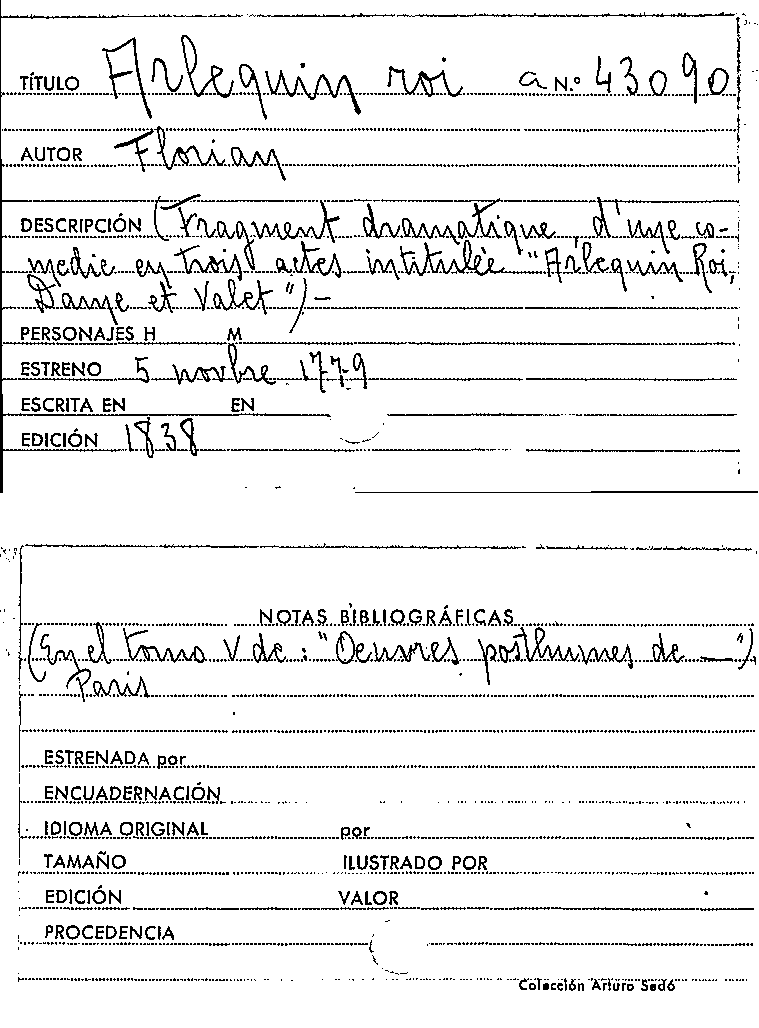 TÍTULO Arlequin roi a N.º 43090
AUTOR Florian
DESCRIPCIÓN (Fragment dramatique, d'une co-
medie en trois actes intitulée "Arlequin Roi,
Dame et Valet")-
PERSONAJES H M
ESTRENO 5 novbre 1779
ESCRITA EN EN
EDICIÓN 1838
NOTAS BIBLIOGRÁFICAS
(En el tomo V de: "Oeuvres posthumes de —")
Paris
ESTRENADA por
ENCUADERNACIÓN
IDIOMA ORIGINAL por
TAMAÑO ILUSTRADO POR
EDICIÓN VALOR
PROCEDENCIA
Colección Arturo Sedó